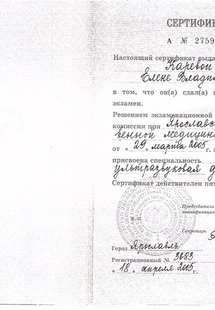 СЕРТИФИК
А № 2759
Настоящий сертификат выда
Каревой
Елене Влади
в том, что он(а) сдал(а)
экзамен.
Решением экзаменационной
комиссии при Ярославс
медицин
от « 29 » марта 2005 г.
присвоена специальность
ультразвуковая д
Сертификат действителен пят
Председатель
квалификацион
Секретарь
Город Ярославль
Регистрационный № 3683
« 18 » апреля 2005г.